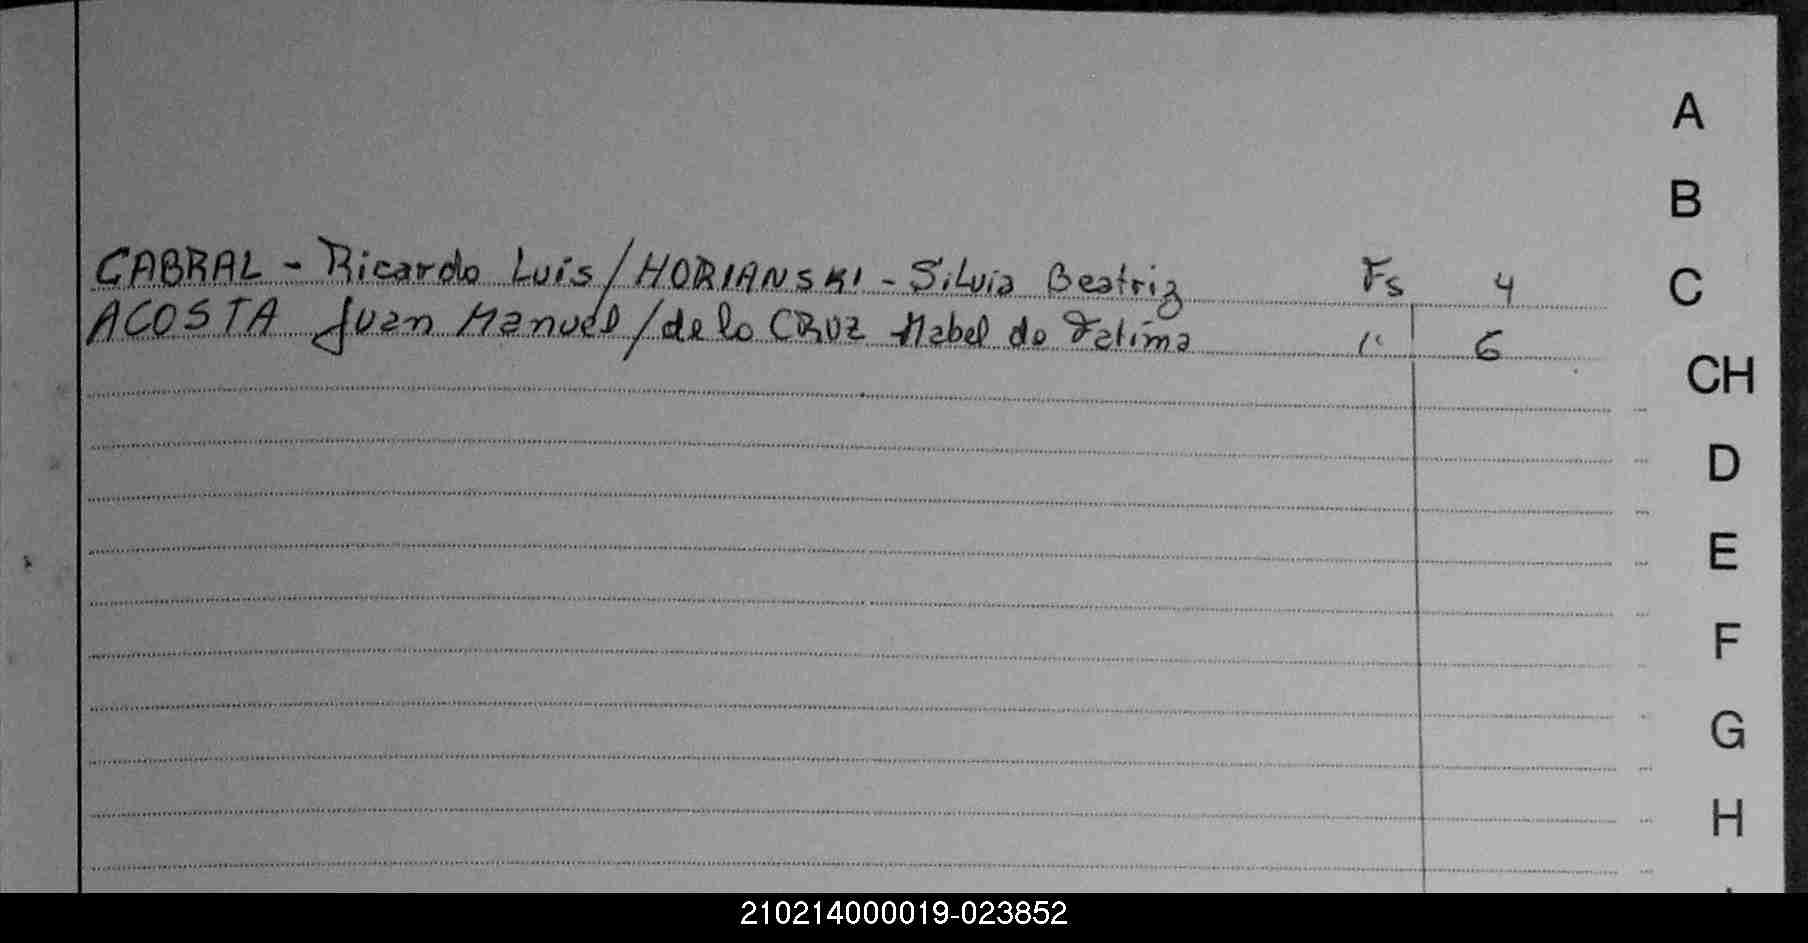 A
B
CABRAL - Ricardo Luis / HORIANSKI - Silvia Beatriz Fs 4
C
ACOSTA Juan Manuel / de la CRUZ Mabel de Fatima " 6
CH
D
E
F
G
H
210214000019-023852